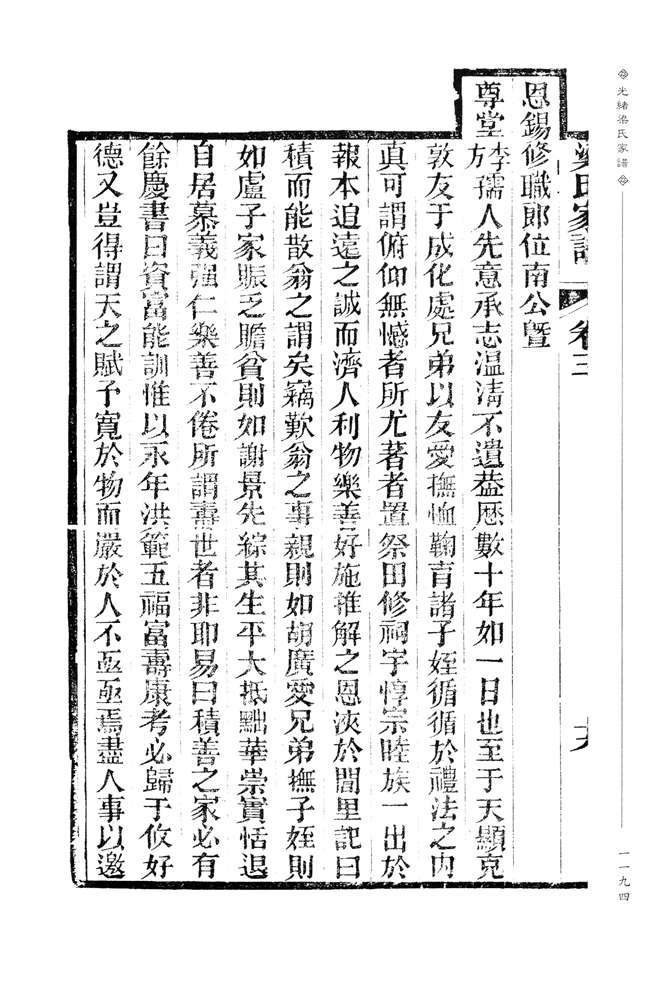 光緒梁氏家譜
一一九四
梁氏家譜 卷三 十六
恩錫修職郎位南公暨
尊堂李孺人先意承志温凊不遺葢歴數十年如一日也至于天顯克
敦友于成化處兄弟以友愛撫恤鞠育諸子姪循循於禮法之内
真可謂俯仰無憾者所尤著者置祭田修祠宇惇宗睦族一出於
報本追遠之誠而濟人利物樂善好施推解之恩浹於閭里記曰
積而能散翁之謂矣竊歎翁之事親則如胡廣愛兄弟撫子姪則
如盧子家賑乏贍貧則如謝景先綜其生平大抵黜華崇實恬退
自居慕義强仁樂善不倦所謂壽世者非耶易曰積善之家必有
餘慶書曰資富能訓惟以永年洪範五福富壽康考必歸于攸好
德又豈得謂天之賦予寛於物而嚴於人不亟亟焉盡人事以邀